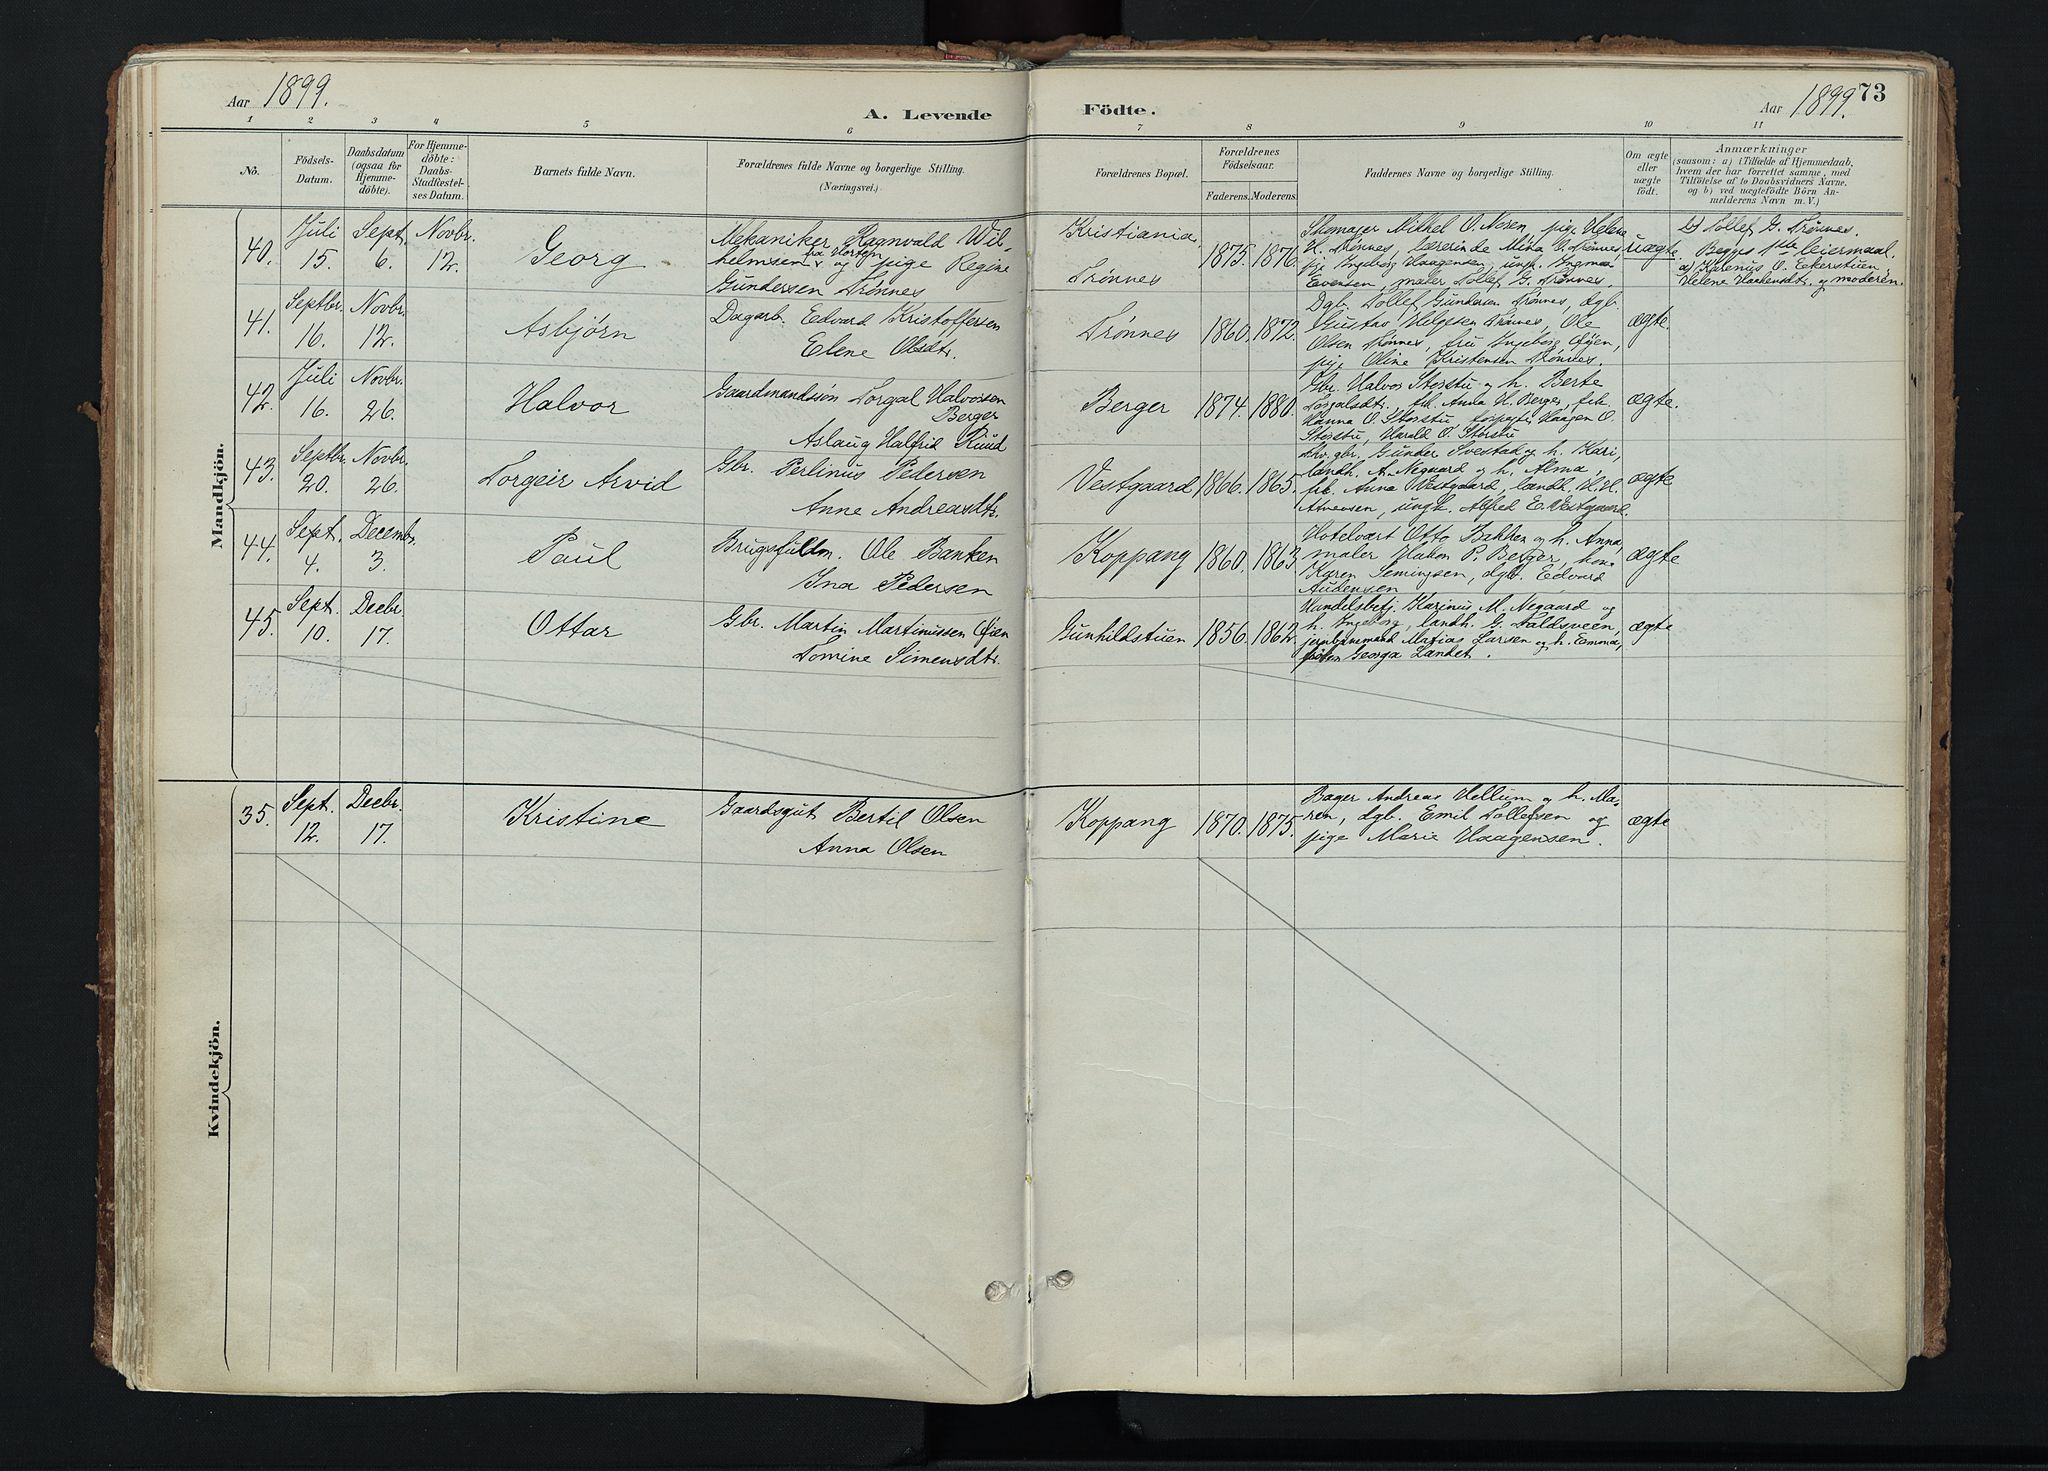 Aar 1899.
A. Levende Födte.
Aar 1899. 73
1 2 3 4 5 6 7 8 9 10 11
No.
Födsels-
Datum.
Daabsdatum
(ogsaa for
Hjemme-
döbte).
For Hjemme-
döbte:
Daabs-
Stadfæstel-
ses Datum.
Barnets fulde Navn.
Forældrenes fulde Navne og borgerlige Stilling.
(Næringsvei.)
Forældrenes Bopæl.
Forældrenes
Födselsaar.
Faderens. Moderens.
Faddernes Navne og borgerlige Stilling.
Om ægte
eller
uægte
födt.
Anmærkninger
(saasom: a) i Tilfælde af Hjemmedaab,
hvem der har forrettet samme, med
Tilföielse af to Daabsvidners Navne.
og b) ved uægtefödte Börn An-
melderens Navn m. V.)
Mandkjön.
40.
Juli
15.
Sept.
6.
Novbr.
12.
Georg
Mekaniker Ragnvald Wil-
helmsen fra Horten og pige Regine
Gundersen Trønnes
Kristiania
Trønnes
1875. 1876.
Skomager Mikkel O. Moren, pige Helene
H. Trønnes, lærerinde Mina O. Trønnes,
pige Ingeborg Haagensen, ungk. Ingmar
Evensen, maler Tollef G. Trønnes.
uægte
b) Tollef G. Trønnes.
Begges 1ste leiermaal.
a) Karenus O. Ekerstuen,
Helene Haakensdt. og moderen.
41.
Septbr.
16.
Novbr.
12.
Asbjørn
Dagarb. Edvard Kristoffersen
Elene Olsdtr.
Trønnes
1860. 1872.
Dgb. Tollef Gundersen Trønnes, dgb.
Gustav Helgesen Trønnes, Ole
Olsen Trønnes, fru Ingeborg Øien,
pige Oline Kristensen Trønnes.
ægte.
42.
Juli
16.
Novbr.
26.
Halvor
Gaardmandssøn Torgal Halvorsen
Berger
Aslaug Halfrid Ruud
Berger
1874. 1880.
Gbr. Halvor Storstu og h. Berte
Torgalsdtr., frk. Anna H. Berger, frk.
Hanna O. Storstu, Haagen O.
Storstu, Harald O. Storstu
ægte.
43.
Septbr.
20.
Novbr.
26.
Torgeir Arvid
Gbr. Perlinus Pedersen
Anne Andreasdtr.
Vestgaard
1866. 1865.
gbr. Gunder Svestad og h. Kari,
landh. A. Negaard og h. Alma,
frk. Anna Vestgaard, landh. H. H.
Atneosen, ungk. Alfred E. Vestgaard.
ægte
44.
Sept.
4.
Decembr.
3.
Paul
Brugsfuldm. Ole Banken
Ina Pedersen
Koppang
1860. 1863
Hotelvært Otto Bakken og h. Anna,
maler Hakon P. Berger, kone
Karen Semingsen, dgb. Edvard
Audensen
ægte
45.
Sept.
10.
Decbr.
17.
Ottar
Gbr. Martin Martinussen Øien
Tomine Simensdtr.
Gunhildstuen
1856. 1862.
Handelsbetj. Karinus M. Negaard og
h. Ingeborg, landh. G. Taldsveen,
jernbanemand Matias Larsen og h. Emma,
frøken Georga Landet.
ægte
Kvindekjön.
35.
Sept.
12.
Decbr.
17.
Kristine
Gaardsgut Bertil Olsen
Anna Olsen
Koppang
1870. 1875.
Bager Andreas Hellum og h. Ma-
ren, dgb. Emil Tollefsen og
pige Marie Haagensen.
ægte